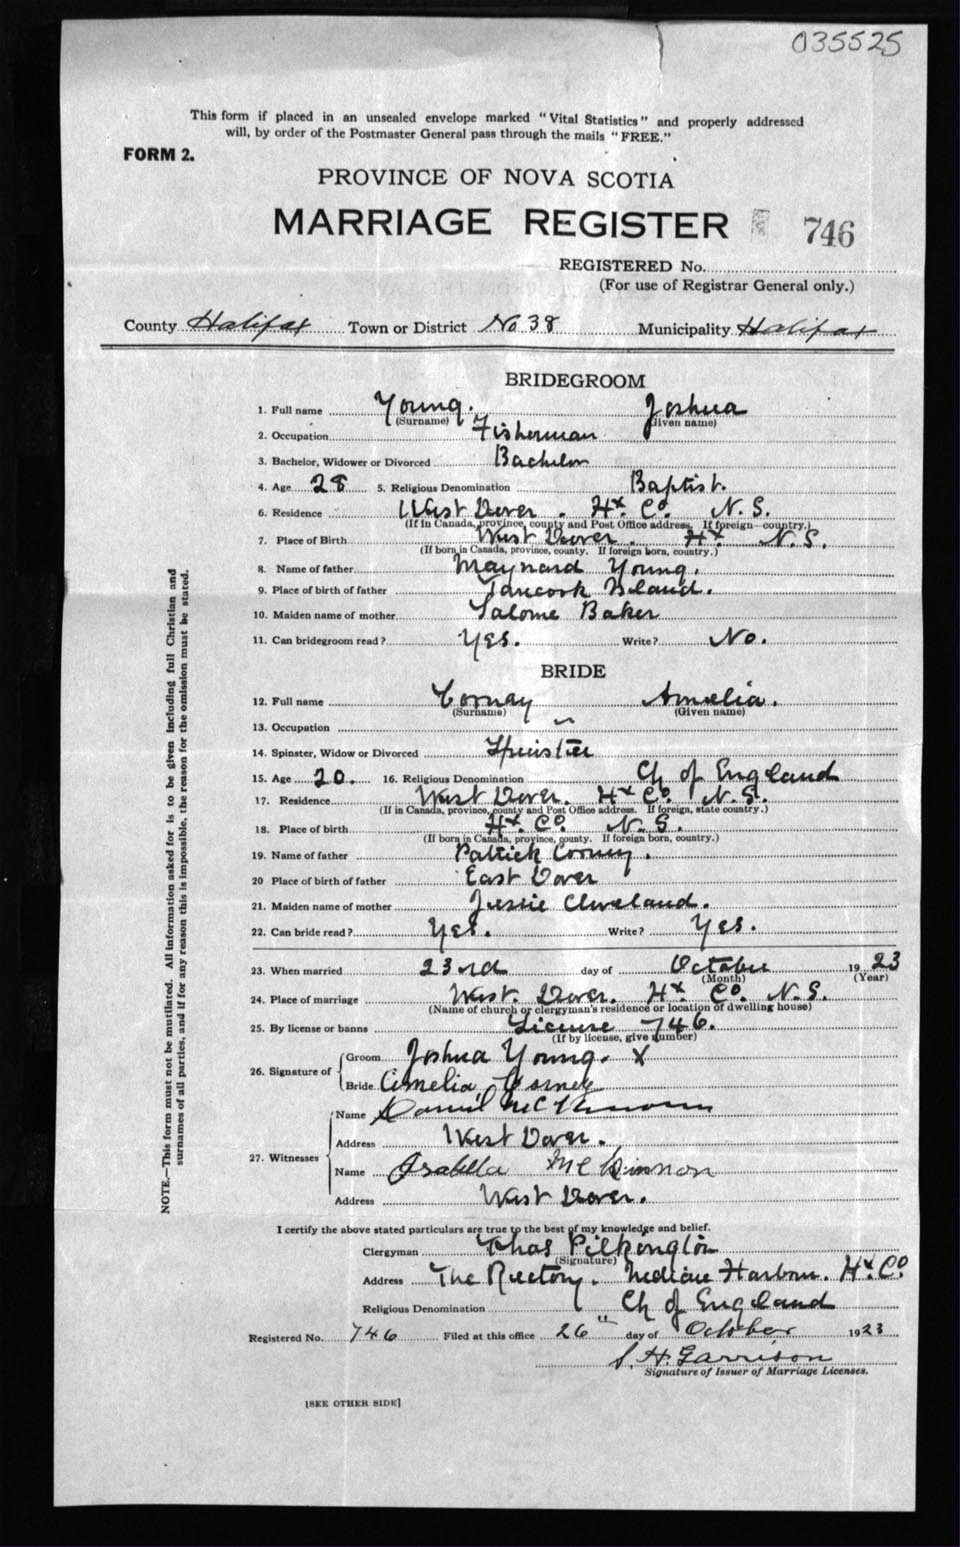 035525
This form if placed in an unsealed envelope marked "Vital Statistics" and properly addressed
will, by order of the Postmaster General pass through the mails "FREE."
FORM 2.
PROVINCE OF NOVA SCOTIA
MARRIAGE REGISTER 746
REGISTERED No.
(For use of Registrar General only.)
County Halifax Town or District No. 38 Municipality Halifax
BRIDEGROOM
1. Full name Young. Joshua
(Surname) (Given name)
2. Occupation Fisherman
3. Bachelor, Widower or Divorced Bachelor
4. Age 28 5. Religious Denomination Baptist.
6. Residence West Dover. Hx. Co. N. S.
(If in Canada, province, county and Post Office address. If foreign—country.)
7. Place of Birth West Dover. Hx N. S.
(If born in Canada, province, county. If foreign born, country.)
8. Name of father Maynard Young.
9. Place of birth of father Tancook Island.
10. Maiden name of mother Salome Baker
11. Can bridegroom read? Yes. Write? No.
BRIDE
12. Full name Corney Amelia.
(Surname) (Given name)
13. Occupation ~
14. Spinster, Widow or Divorced Spinster
15. Age 20. 16. Religious Denomination Ch of England
17. Residence West Dover. Hx Co. N. S.
(If in Canada, province, county and Post Office address. If foreign, state country.)
18. Place of birth Hx. Co. N. S.
(If born in Canada, province, county. If foreign born, country.)
19. Name of father Patrick Corney.
20 Place of birth of father East Dover
21. Maiden name of mother Jessie Cleveland.
22. Can bride read? Yes. Write? Yes.
23. When married 23rd day of October 1923
(Month) (Year)
24. Place of marriage West. Dover. Hx. Co. N. S.
(Name of church or clergyman's residence or location of dwelling house)
25. By license or banns License 746.
(If by license, give number)
26. Signature of Groom Joshua Young. X
Bride Amelia Corney
27. Witnesses Name McKinnon
Address West Dover.
Name Isabella McKinnon
Address West Dover.
I certify the above stated particulars are true to the best of my knowledge and belief.
Clergyman Thos Pilkington
(Signature)
Address The Rectory. Harbour. Hx Co.
Religious Denomination Ch of England
Registered No. 746 Filed at this office 26th day of October 1923
S. H. Garrison
Signature of Issuer of Marriage Licenses.
[SEE OTHER SIDE]
NOTE.—This form must not be mutilated. All information asked for is to be given including full Christian and
surnames of all parties, and if for any reason this is impossible, the reason for the omission must be stated.